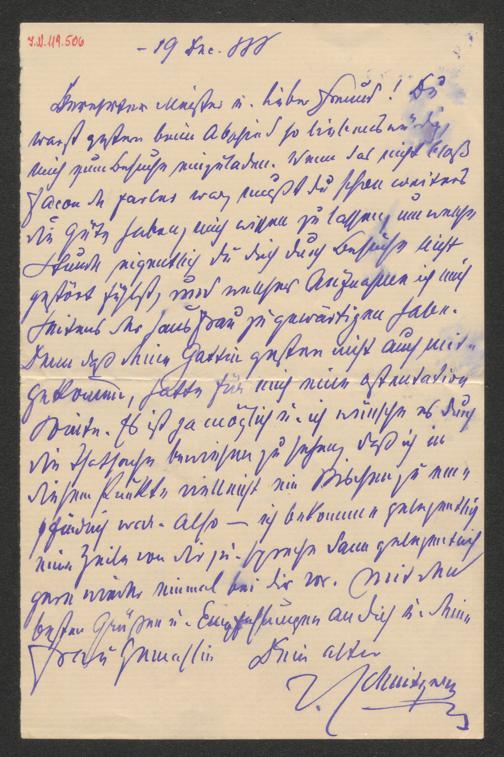 I.N. 119.506
- 19 Dec. 888
Verehrter Meister u. lieber Freund! Du
warst gestern beim Abschied so liebenswürdig,
mich zum Besuche einzuladen. Wenn das nicht bloß
Façon de parler war, mußt du schon weiters
die Güte haben, mich wissen zu lassen, um welche
Stunde eigentlich du dich durch Besuche nicht
gestört fühlst, und welcher Aufnahme ich mich
seitens der Hausfrau zu gewärtigen habe.
Denn daß deine Gattin gestern nicht auch mit-
gekommen, hatte für mich eine ostentative
Pointe. Es ist ja möglich u. ich wünsche es durch
die Thatsache bewiesen zu sehen, daß ich in
diesem Punkte vielleicht ein bischen zu em-
pfindlich war. Also — ich bekomme gelegentlich
eine Zeile von dir u. spreche dann gelegentlich
gern wieder einmal bei dir vor. Mit den
besten Grüßen u. Empfehlungen an dich u. deine
Frau Gemahlin Dein alter